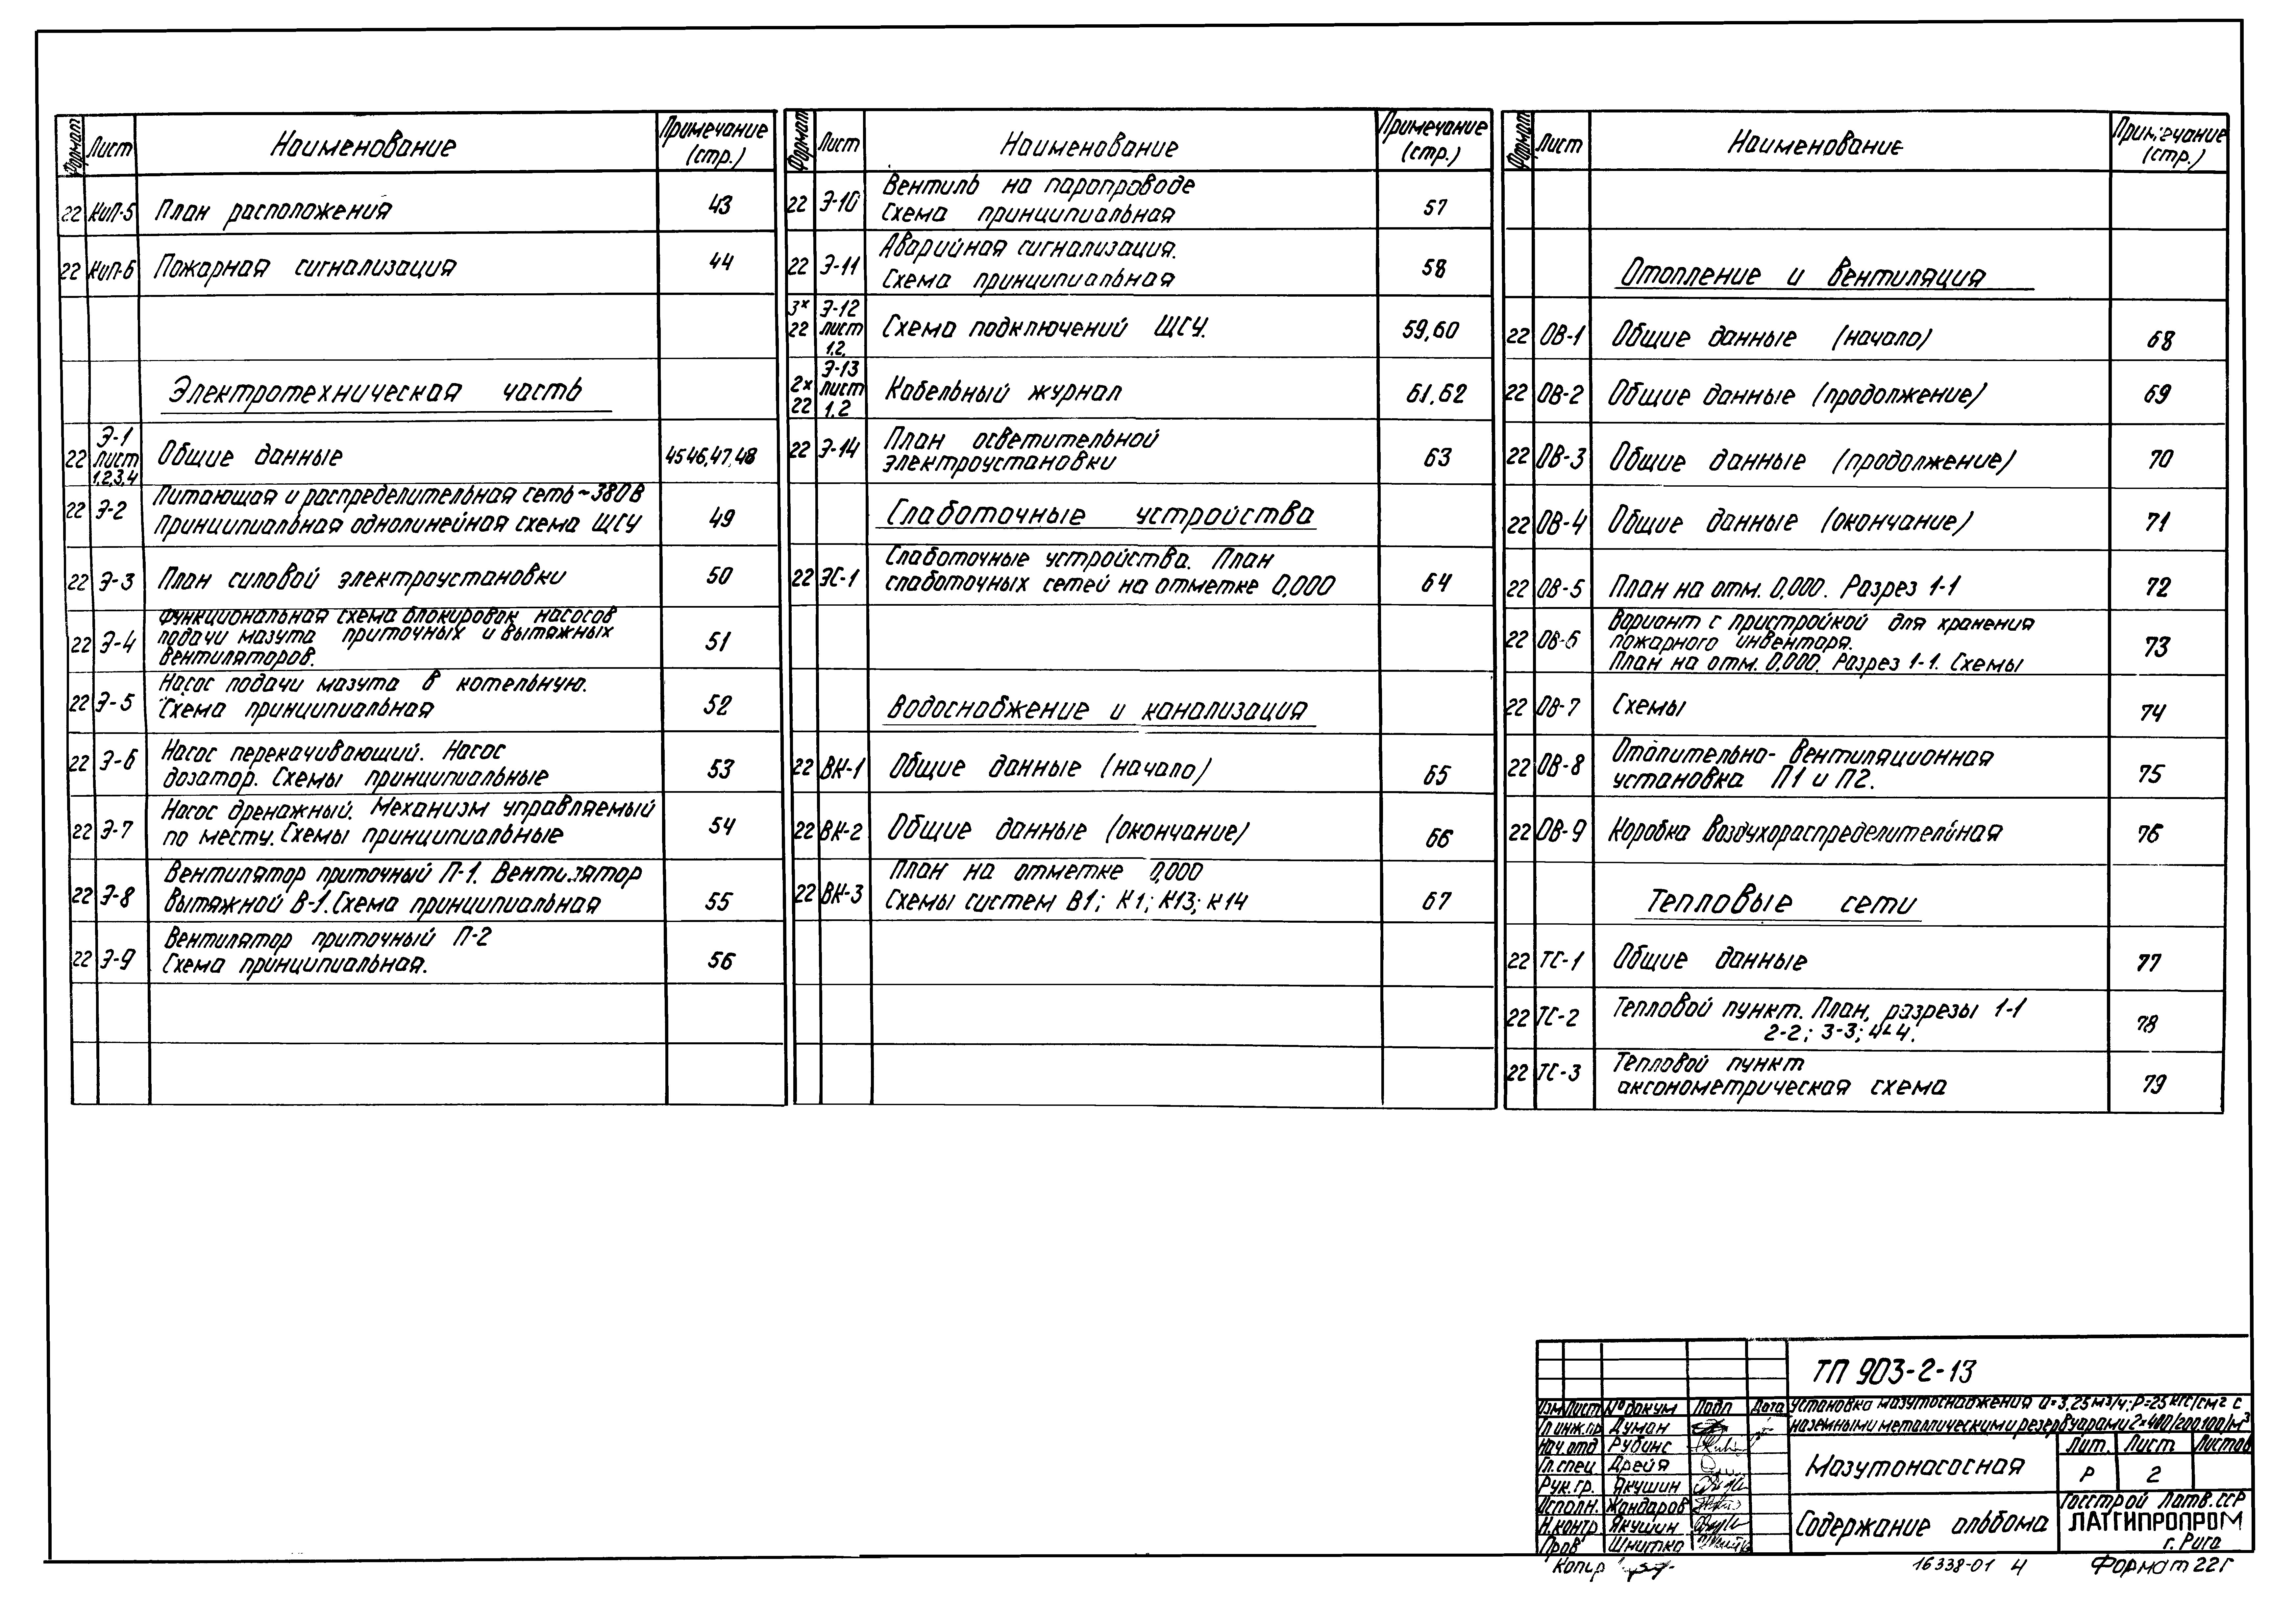 Формат Лист Наименование Примечание (стр.)
22 КиП-5 План расположения 43
22 КиП-6 Пожарная сигнализация 44
Электротехническая часть
22 Э-1 Лист 1,2,3,4 Общие данные 45 46,47,48
22 Э-2 Питающая и распределительная сеть ~380В
Принципиальная однолинейная схема ЩСУ 49
22 Э-3 План силовой электроустановки 50
22 Э-4 Функциональная схема блокировок насосов
подачи мазута приточных и вытяжных
вентиляторов. 51
22 Э-5 Насос подачи мазута в котельную.
Схема принципиальная 52
22 Э-6 Насос перекачивающий. Насос
дозатор. Схемы принципиальные 53
22 Э-7 Насос дренажный. Механизм управляемый
по месту. Схемы принципиальные 54
22 Э-8 Вентилятор приточный П-1. Вентилятор
вытяжной В-1. Схема принципиальная 55
22 Э-9 Вентилятор приточный П-2
Схема принципиальная. 56
Формат Лист Наименование Примечание (стр.)
22 Э-10 Вентиль на паропроводе
Схема принципиальная 57
22 Э-11 Аварийная сигнализация.
Схема принципиальная 58
3х 22 Э-12 лист 1,2. Схема подключений ЩСУ. 59,60
2х 22 Э-13 лист 1,2 Кабельный журнал 61,62
22 Э-14 План осветительной
электроустановки 63
Слаботочные устройства
22 ЭС-1 Слаботочные устройства. План
слаботочных сетей на отметке 0,000 64
Водоснабжение и канализация
22 ВК-1 Общие данные (начало) 65
22 ВК-2 Общие данные (окончание) 66
22 ВК-3 План на отметке 0,000
Схемы систем В1; К1; К13; К14 67
Формат Лист Наименование Примечание (стр.)
Отопление и вентиляция
22 ОВ-1 Общие данные (начало) 68
22 ОВ-2 Общие данные (продолжение) 69
22 ОВ-3 Общие данные (продолжение) 70
22 ОВ-4 Общие данные (окончание) 71
22 ОВ-5 План на отм. 0,000. Разрез 1-1 72
22 ОВ-6 Вариант с пристройкой для хранения
пожарного инвентаря.
План на отм. 0,000. Разрез 1-1. Схемы 73
22 ОВ-7 Схемы 74
22 ОВ-8 Отопительно-вентиляционная
установка П1 и П2. 75
22 ОВ-9 Коробка воздухораспределительная 76
Тепловые сети
22 ТС-1 Общие данные 77
22 ТС-2 Тепловой пункт. План, разрезы 1-1
2-2; 3-3; 4-4. 78
22 ТС-3 Тепловой пункт
аксонометрическая схема 79
ТП 903-2-13
Изм Лист № докум Подп Дата
Установка мазутоснабжения
наземными металлическими резервуарами
Гл.инж.пр Думан
Нач.отд Рубинс
Гл.спец Дрейя
Рук.гр. Якушин
Исполн. Жандаров
Н.контр Якушин
Пров Шнитко
Мазутонасосная
Лит. Лист Листов
Р 2
Содержание альбома
Госстрой Латв.ССР
ЛАТГИПРОПРОМ
г. Рига
Копир
16338-01 4 Формат 22Г